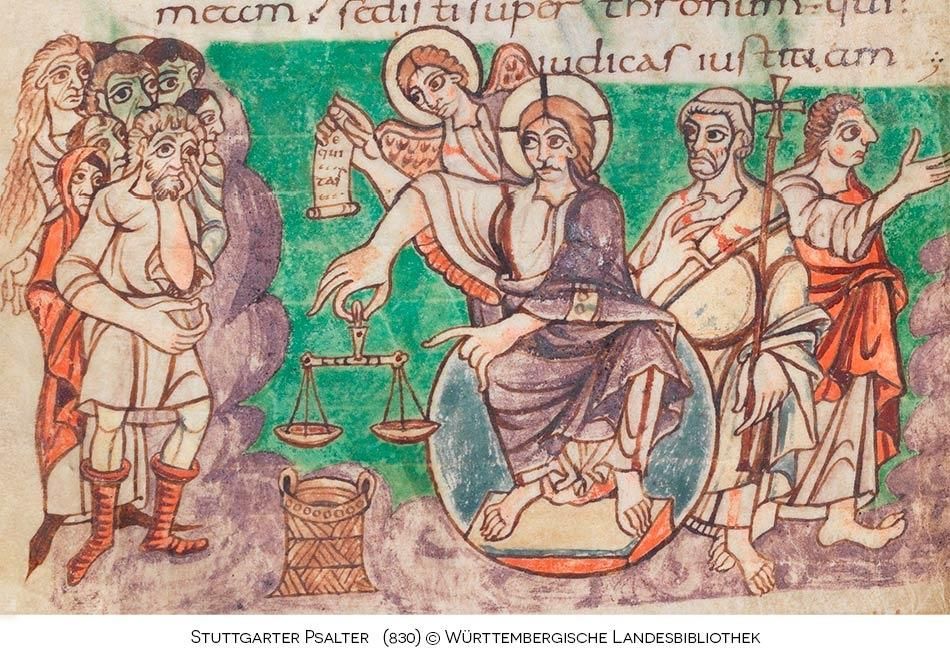 meam ; sedisti super thronum qui
iudicas iustitiam ;
e
qui
tas
STUTTGARTER PSALTER (830) © WÜRTTEMBERGISCHE LANDESBIBLIOTHEK